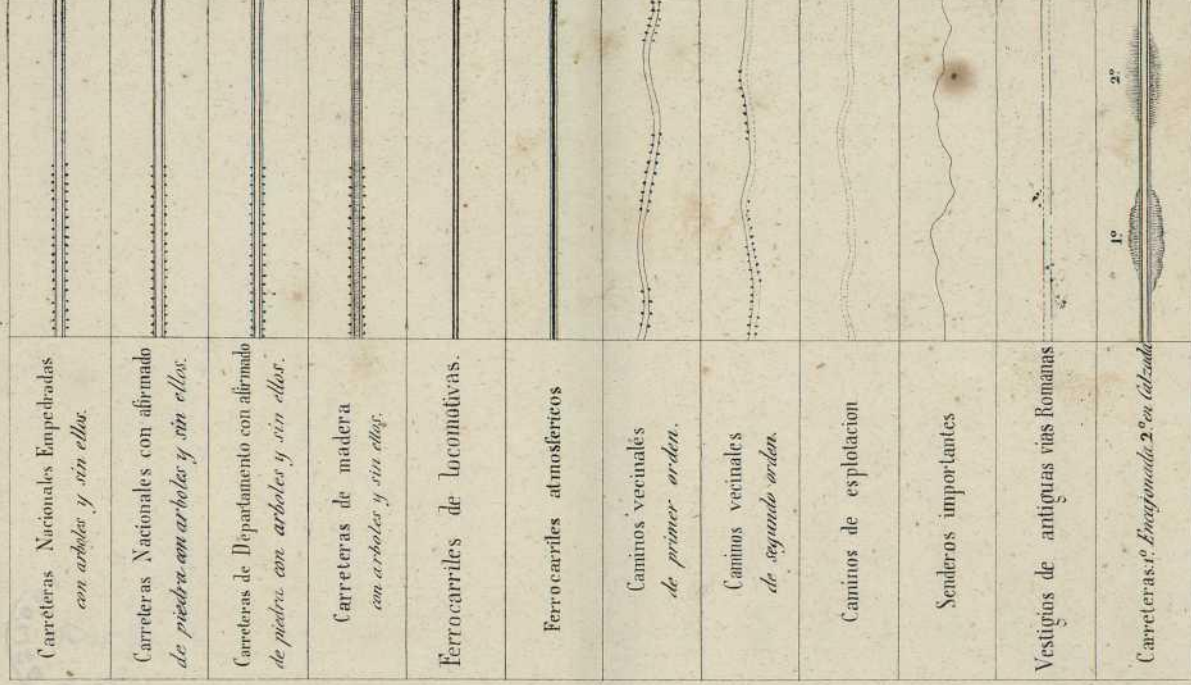 Carreteras Nacionales Empedradas
con arboles y sin ellos.
Carreteras Nacionales con afirmado
de piedra con arboles y sin ellos.
Carreteras de Departamento con afirmado
de piedra con arboles y sin ellos.
Carreteras de madera
con arboles y sin ellos.
Ferrocarriles de locomotivas.
Ferrocarriles atmosfericos
Caminos vecinales
de primer orden.
Caminos vecinales
de segundo orden.
Caminos de esplotacion
Senderos importantes
Vestigios de antiguas vias Romanas
Carreteras. 1º Encajonada 2º en Calzada
1º
2º